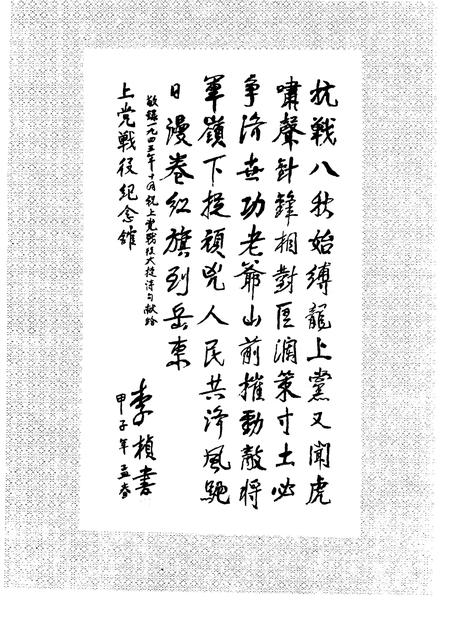 抗戰八秋始縛龍上黨又聞虎
嘯聲針鋒相對匡澗策寸土必
爭濟世功老爺山前摧勁敵將
軍嶺下捉頑兇人民共淨風馳
日漫卷紅旗到岳東
敬錄一九四五年十月祝上党戰役大捷詩句獻給
上党戰役紀念館
李楨書
甲子年孟春